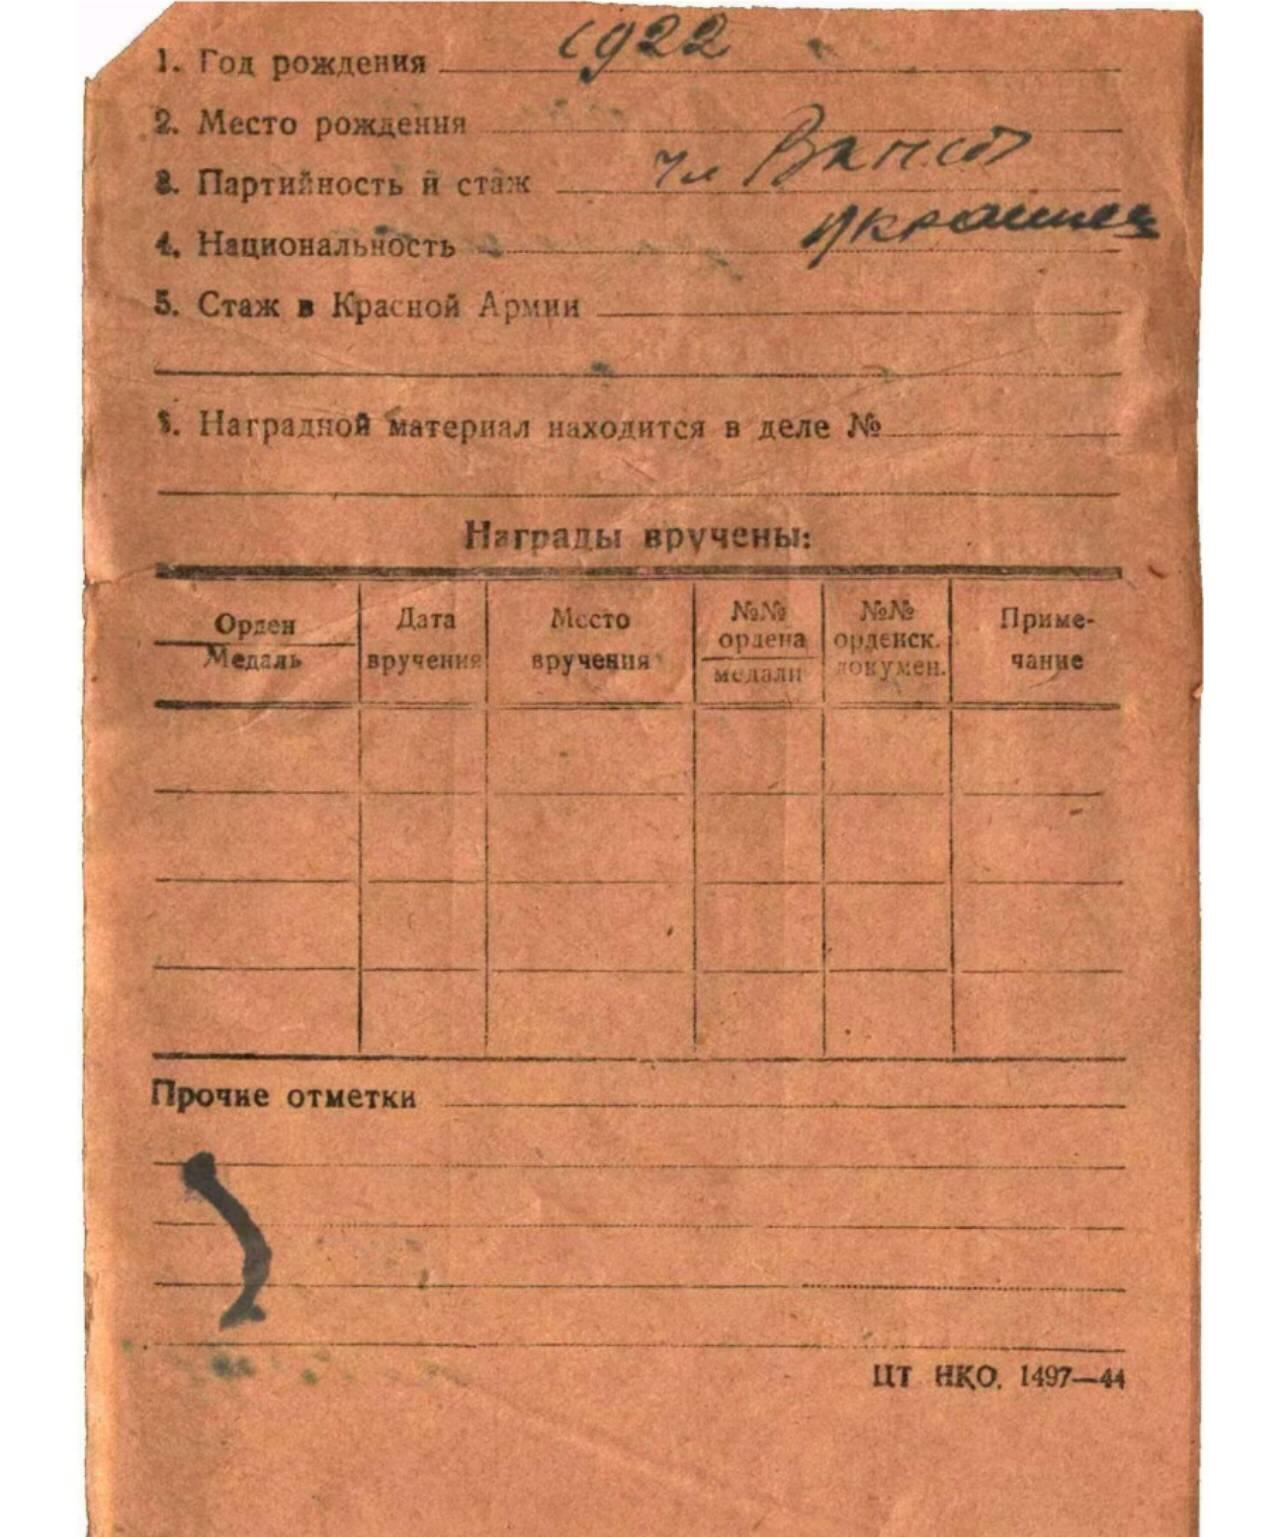 1. Год рождения 1922
2. Место рождения
3. Партийность и стаж чл
4. Национальность украинец
5. Стаж в Красной Армии
1. Наградной материал находится в деле №
Награды вручены:
Орден Медаль
Дата вручения
Место вручения
№№ ордена медали
№№ орденск. докумен.
Приме-
чание
Прочие отметки
ЦТ НКО. 1497—44